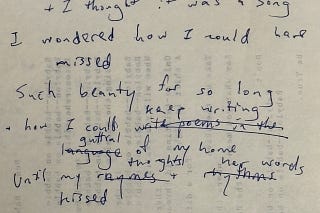 + I thought it was a song
I wondered how I could have
missed
Such beauty for so long
keep writing
+ how I could write poems in the
guttral
language of my home
thoughts new words
Until my rhymes + rhythms
hissed